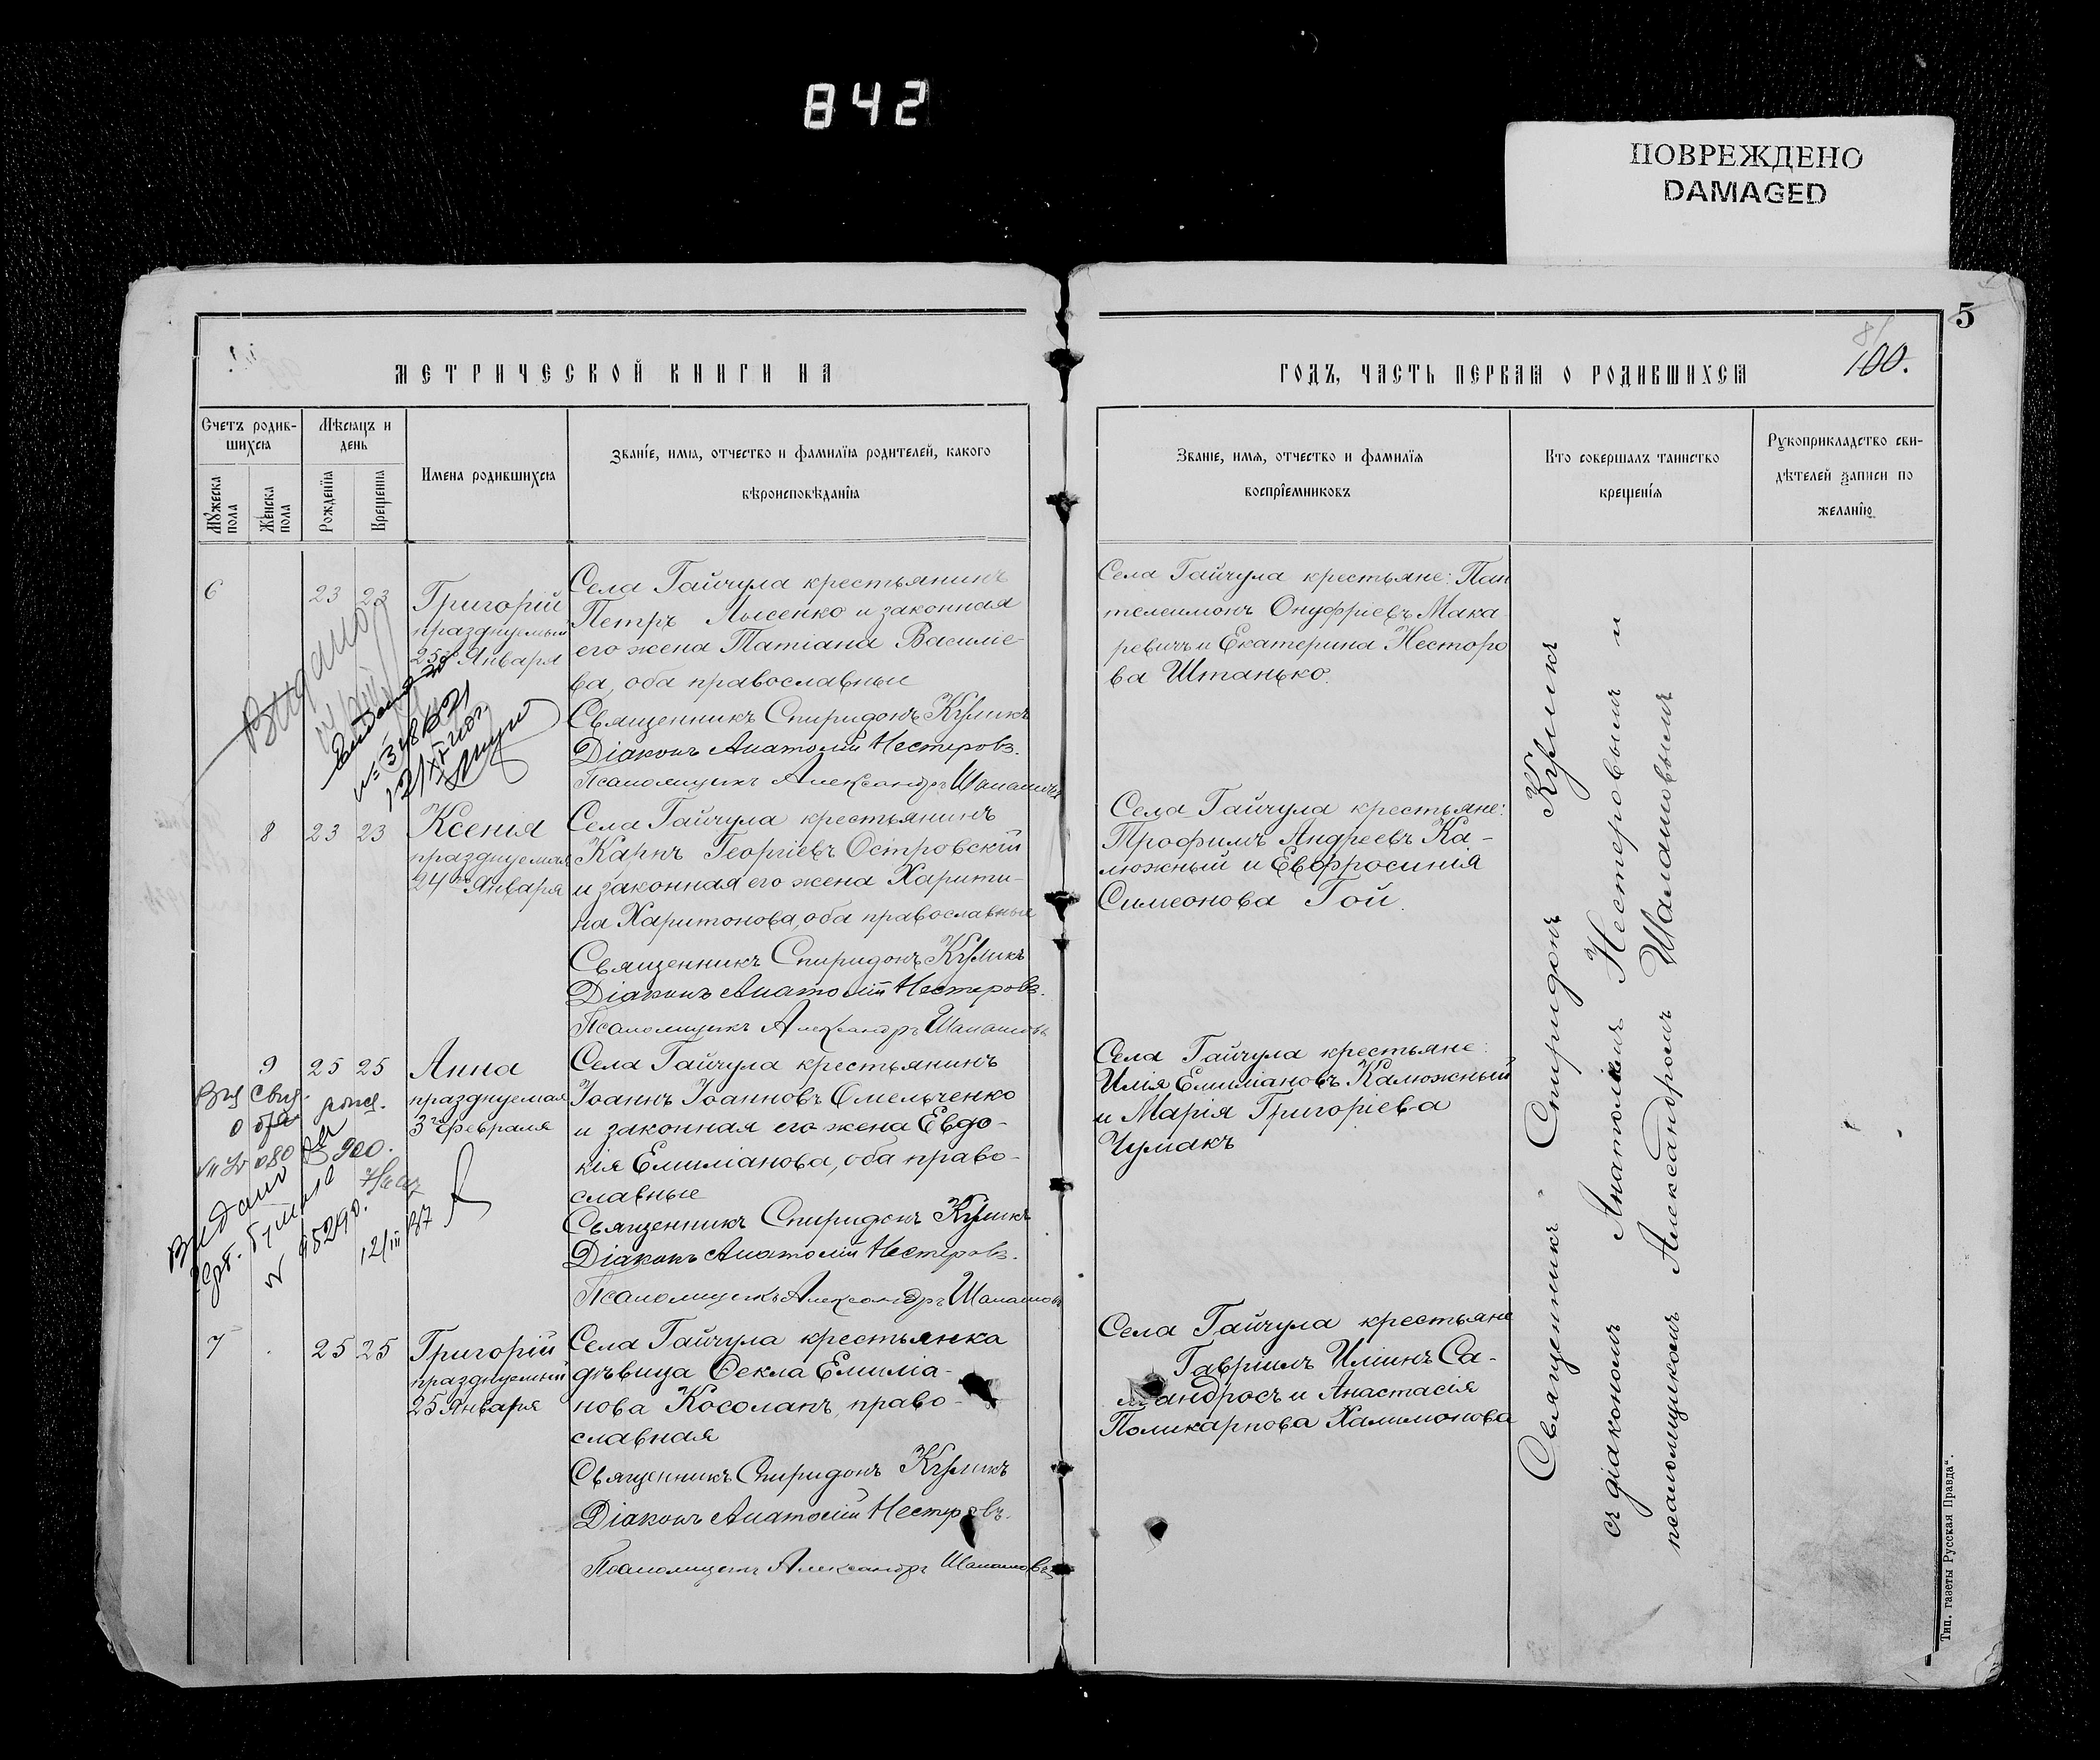 842
ПОВРЕЖДЕНО
DAMAGED
5
81
100.
МЕТРИЧЕСКОЙ КНИГИ НА
ГОДЪ, ЧАСТЬ ПЕРВАЯ О РОДИВШИХСЯ
Счетъ родив-
шихся
Мѣсяцъ и
день
Мужеска
пола
Женска
пола
Рожденїя
Крещенїя
Имена родившихся
Званїе, имя, отчество и фамилїя родителей, какого
вѣроисповѣданїя
Званїе, имя, отчество и фамилїя
воспрїемниковъ
Кто совершалъ таинство
крещенїя
Рукоприкладство сви-
дѣтелей записи по
желанїю
6
23 23
Григорій
празднуемый
25го Января
Села Гайчула крестьянинъ
Петръ Лысенко и законная
его жена Татіана Василіе-
ва, оба православные
Священникъ Спиридонъ Куликъ
Діаконъ Анатолій Нестеровъ.
Псаломщикъ Александръ Шаламовъ
Села Гайчула крестьяне: Пан
телеимонъ Онуфріевъ Мака
ревичъ и Екатерина Несторо
ва Штанько.
Видано
8
23 23
Ксенія
празднуемая
24го Января
Села Гайчула крестьянинъ
Карпъ Георгіевъ Островскій
и законная его жена Харити-
на Харитонова, оба православные
Священникъ Спиридонъ Куликъ
Діаконъ Анатолій Нестеровъ.
Псаломщикъ Александръ Шаламовъ
Села Гайчула крестьяне:
Трофимъ Андреевъ Ка-
люжный и Евфросинія
Симеонова Гой.
9
25 25
Анна
празднуемая
3го Февраля
Села Гайчула крестьянинъ
Іоаннъ Іоанновъ Омельченко
и законная его жена Евдо-
кія Емиліанова, оба право-
славные
Священникъ Спиридонъ Куликъ
Діаконъ Анатолій Нестеровъ.
Псаломщикъ Александръ Шаламовъ
Села Гайчула крестьяне:
Илія Емиліановъ Калюжный
и Марія Григоріева
Чумакъ
Видано
7
25 25
Григорій
празднуемый
25 Января
Села Гайчула крестьянка
дѣвица Ѳекла Емиліа-
нова Косолапъ, право-
славная
Священникъ Спиридонъ Куликъ
Діаконъ Анатолій Нестеровъ.
Псаломщикъ Александръ Шаламовъ
Села Гайчула крестьяне
Гавріилъ Иліинъ Са-
мандросъ и Анастасія
Поликарпова Халимонова
Священникъ Спиридонъ Куликъ
съ діакономъ Анатоліемъ Нестеровымъ и
псаломщикомъ Александромъ Шаламовымъ
Тип. газеты Русская Правда".